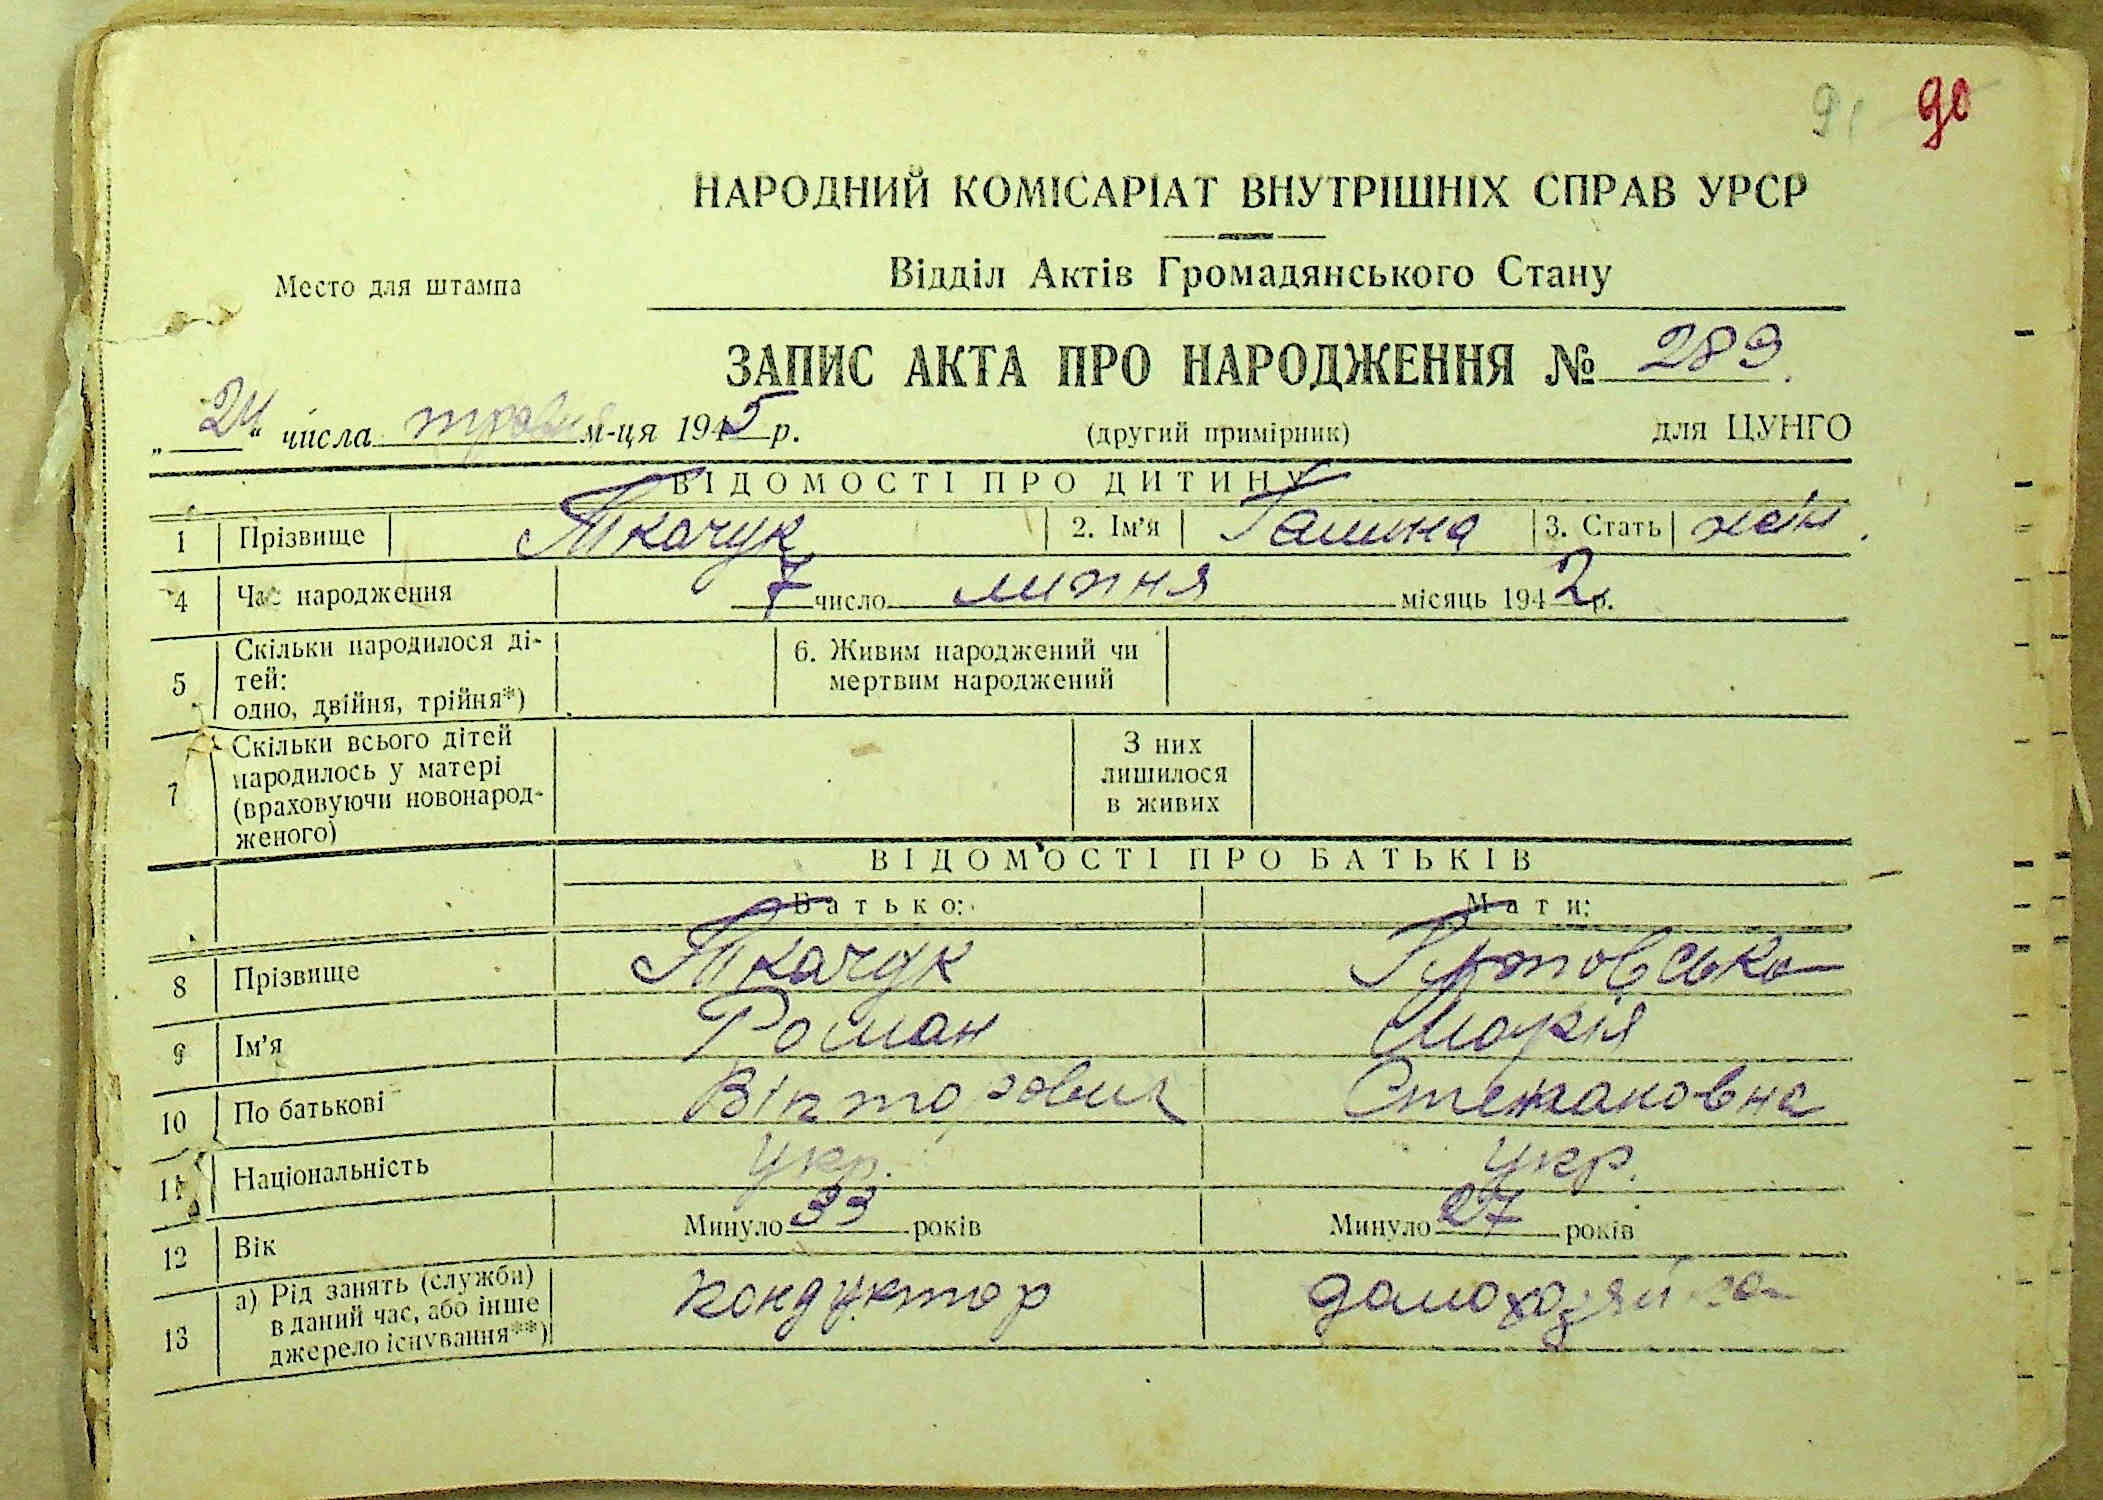 91 90
НАРОДНИЙ КОМІСАРІАТ ВНУТРІШНІХ СПРАВ УРСР
Место для штампа
Відділ Актів Громадянського Стану
ЗАПИС АКТА ПРО НАРОДЖЕННЯ № 289.
„24“ числа травня м-ця 1945 р. (другий примірник) для ЦУНГО
ВІДОМОСТІ ПРО ДИТИНУ
1 Прізвище Ткачук 2. Ім'я Галина 3. Стать жін.
4 Час народження 7 число липня місяць 1942 р.
5 Скільки народилося ді-
тей:
одно, двійня, трійня*)
6. Живим народжений чи
мертвим народжений
7 Скільки всього дітей
народилось у матері
(враховуючи новонарод-
женого)
З них
лишилося
в живих
ВІДОМОСТІ ПРО БАТЬКІВ
Батько: Мати:
8 Прізвище Ткачук
9 Ім'я Роман Марія
10 По батькові Вікторович Степановна
11 Національність укр. укр.
12 Вік Минуло 33 років Минуло 27 років
13 а) Рід занять (служби)
в даний час, або інше
джерело існування**)
кондуктор домохозяйка